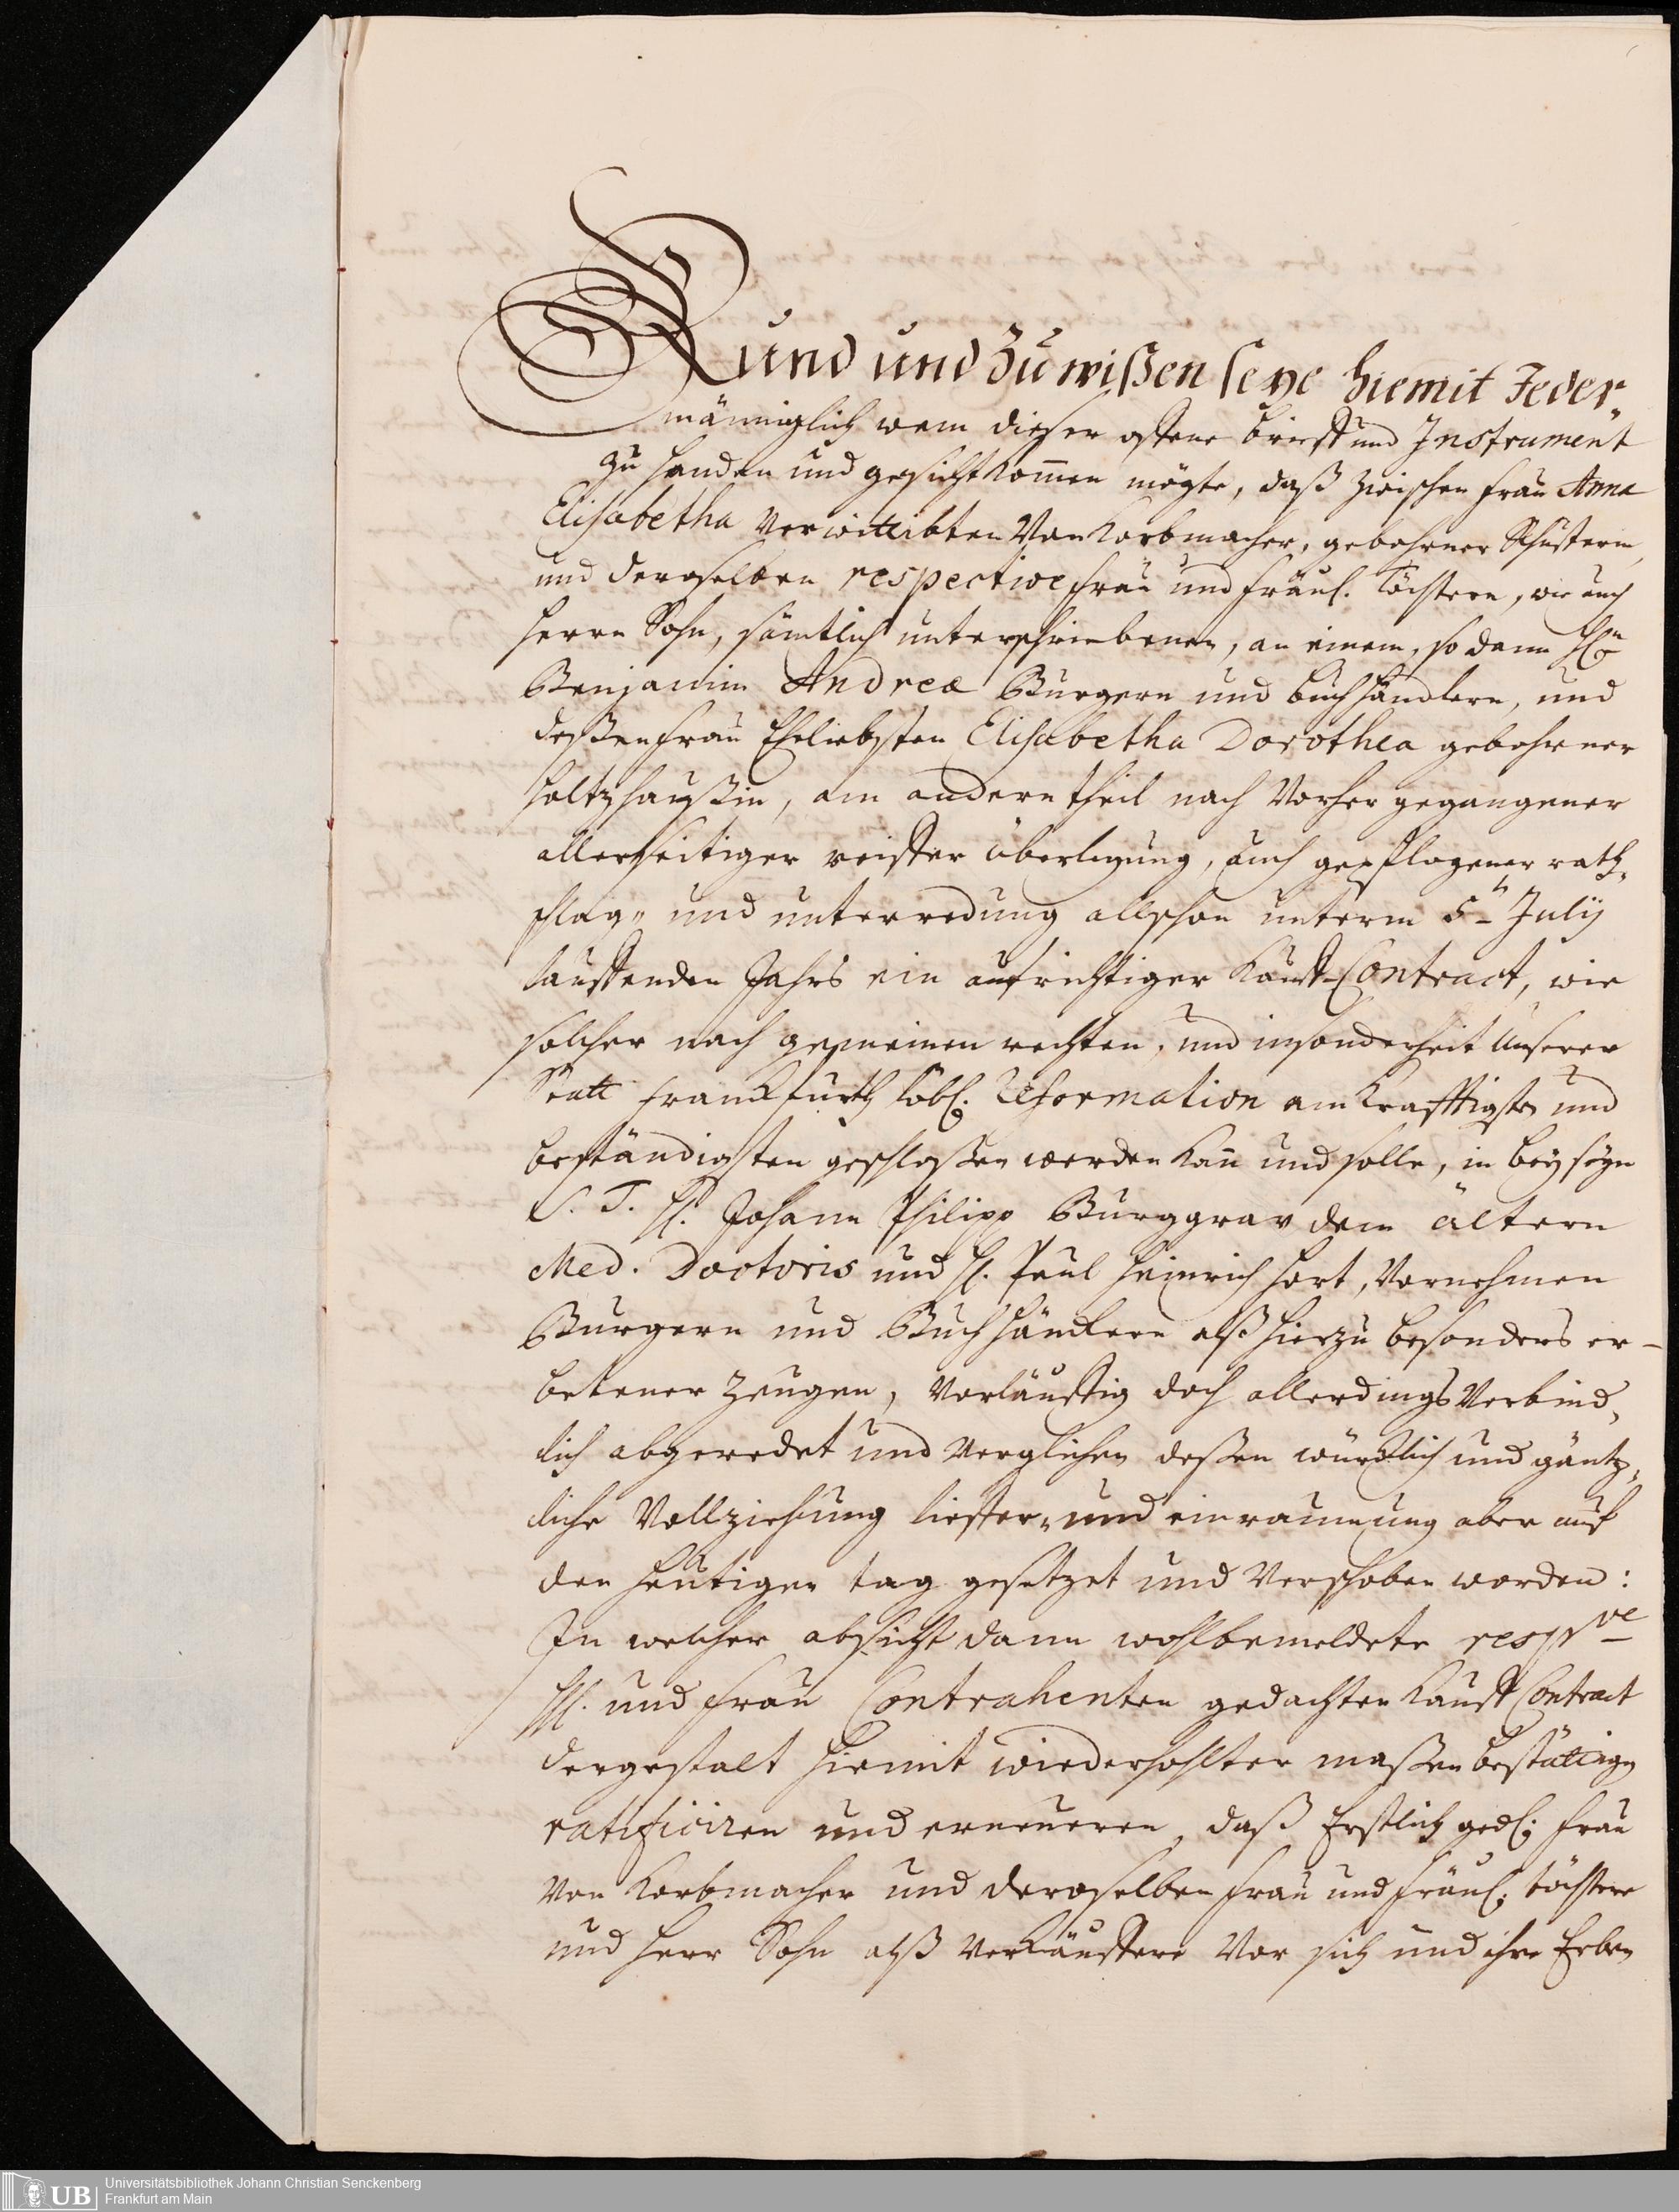 Kund und Zu wißen seye hiemit Jeder„
männiglich wem dieser offene brieff und Instrument
zu handen und gesicht kom̅en mögte, daß zwischen Frau Anna
Elisabetha Verwittibten Von Korbmacher, gebohrner Schusterin,
und deroselben respective Frau und Fräul. Töchtern, wie auch
Herrn Sohn, sämtlich unterschriebenen, an einem, so dann Hln
Benjamin Andreæ Burgern und buchhändlern, und
deßen Frau Eheliebsten Elisabetha Dorothea gebohrner
Holtzhaußin, am andern theil nach Vorher gegangener
allerseitiger reiffer überlegung, auch gepflogener rath„
schlag„ und unterredung allschon unterm 5n July
lauffenden Jahrs ein aufrichtiger Kauff-Contract, wie
solcher nach gemeinen rechten, und insonderheit Unserer
Statt Franckfurth löbl. Reformation am Krafftigsten und
beständigsten geschloßen werden kan̅ und solle, in beyseyn
S. T. H. Johann Philipp Burggrav dem ältern
Med. Doctoris und H. Paul Heinrich Hort, Vornehmen
Burgern und Buchhändlern alß hierzu besonders er-
betener Zeugen, Vorläuffig doch allerdings Verbind„
lich abgeredet und Verglichen deßen würcklich und gäntz„
liche Vollziehung lieffer„ und einraumung aber auf
den heutigen tag gesetzet und Verschoben worden:
In welcher absicht dann wohlbemeldete respve
HH. und Frau Contrahenten gedachten Kauff Contract
dergestalt hiemit wiederhohlter maßen bestättigen
ratificiren und erneueren, daß Erstlich gedl: Frau
Von Korbmacher und deroselben Frau und Fräul: töchtere
und Herr Sohn alß Verkäuffere Vor sich und ihre Erben
UB
Universitätsbibliothek Johann Christian Senckenberg
Frankfurt am Main